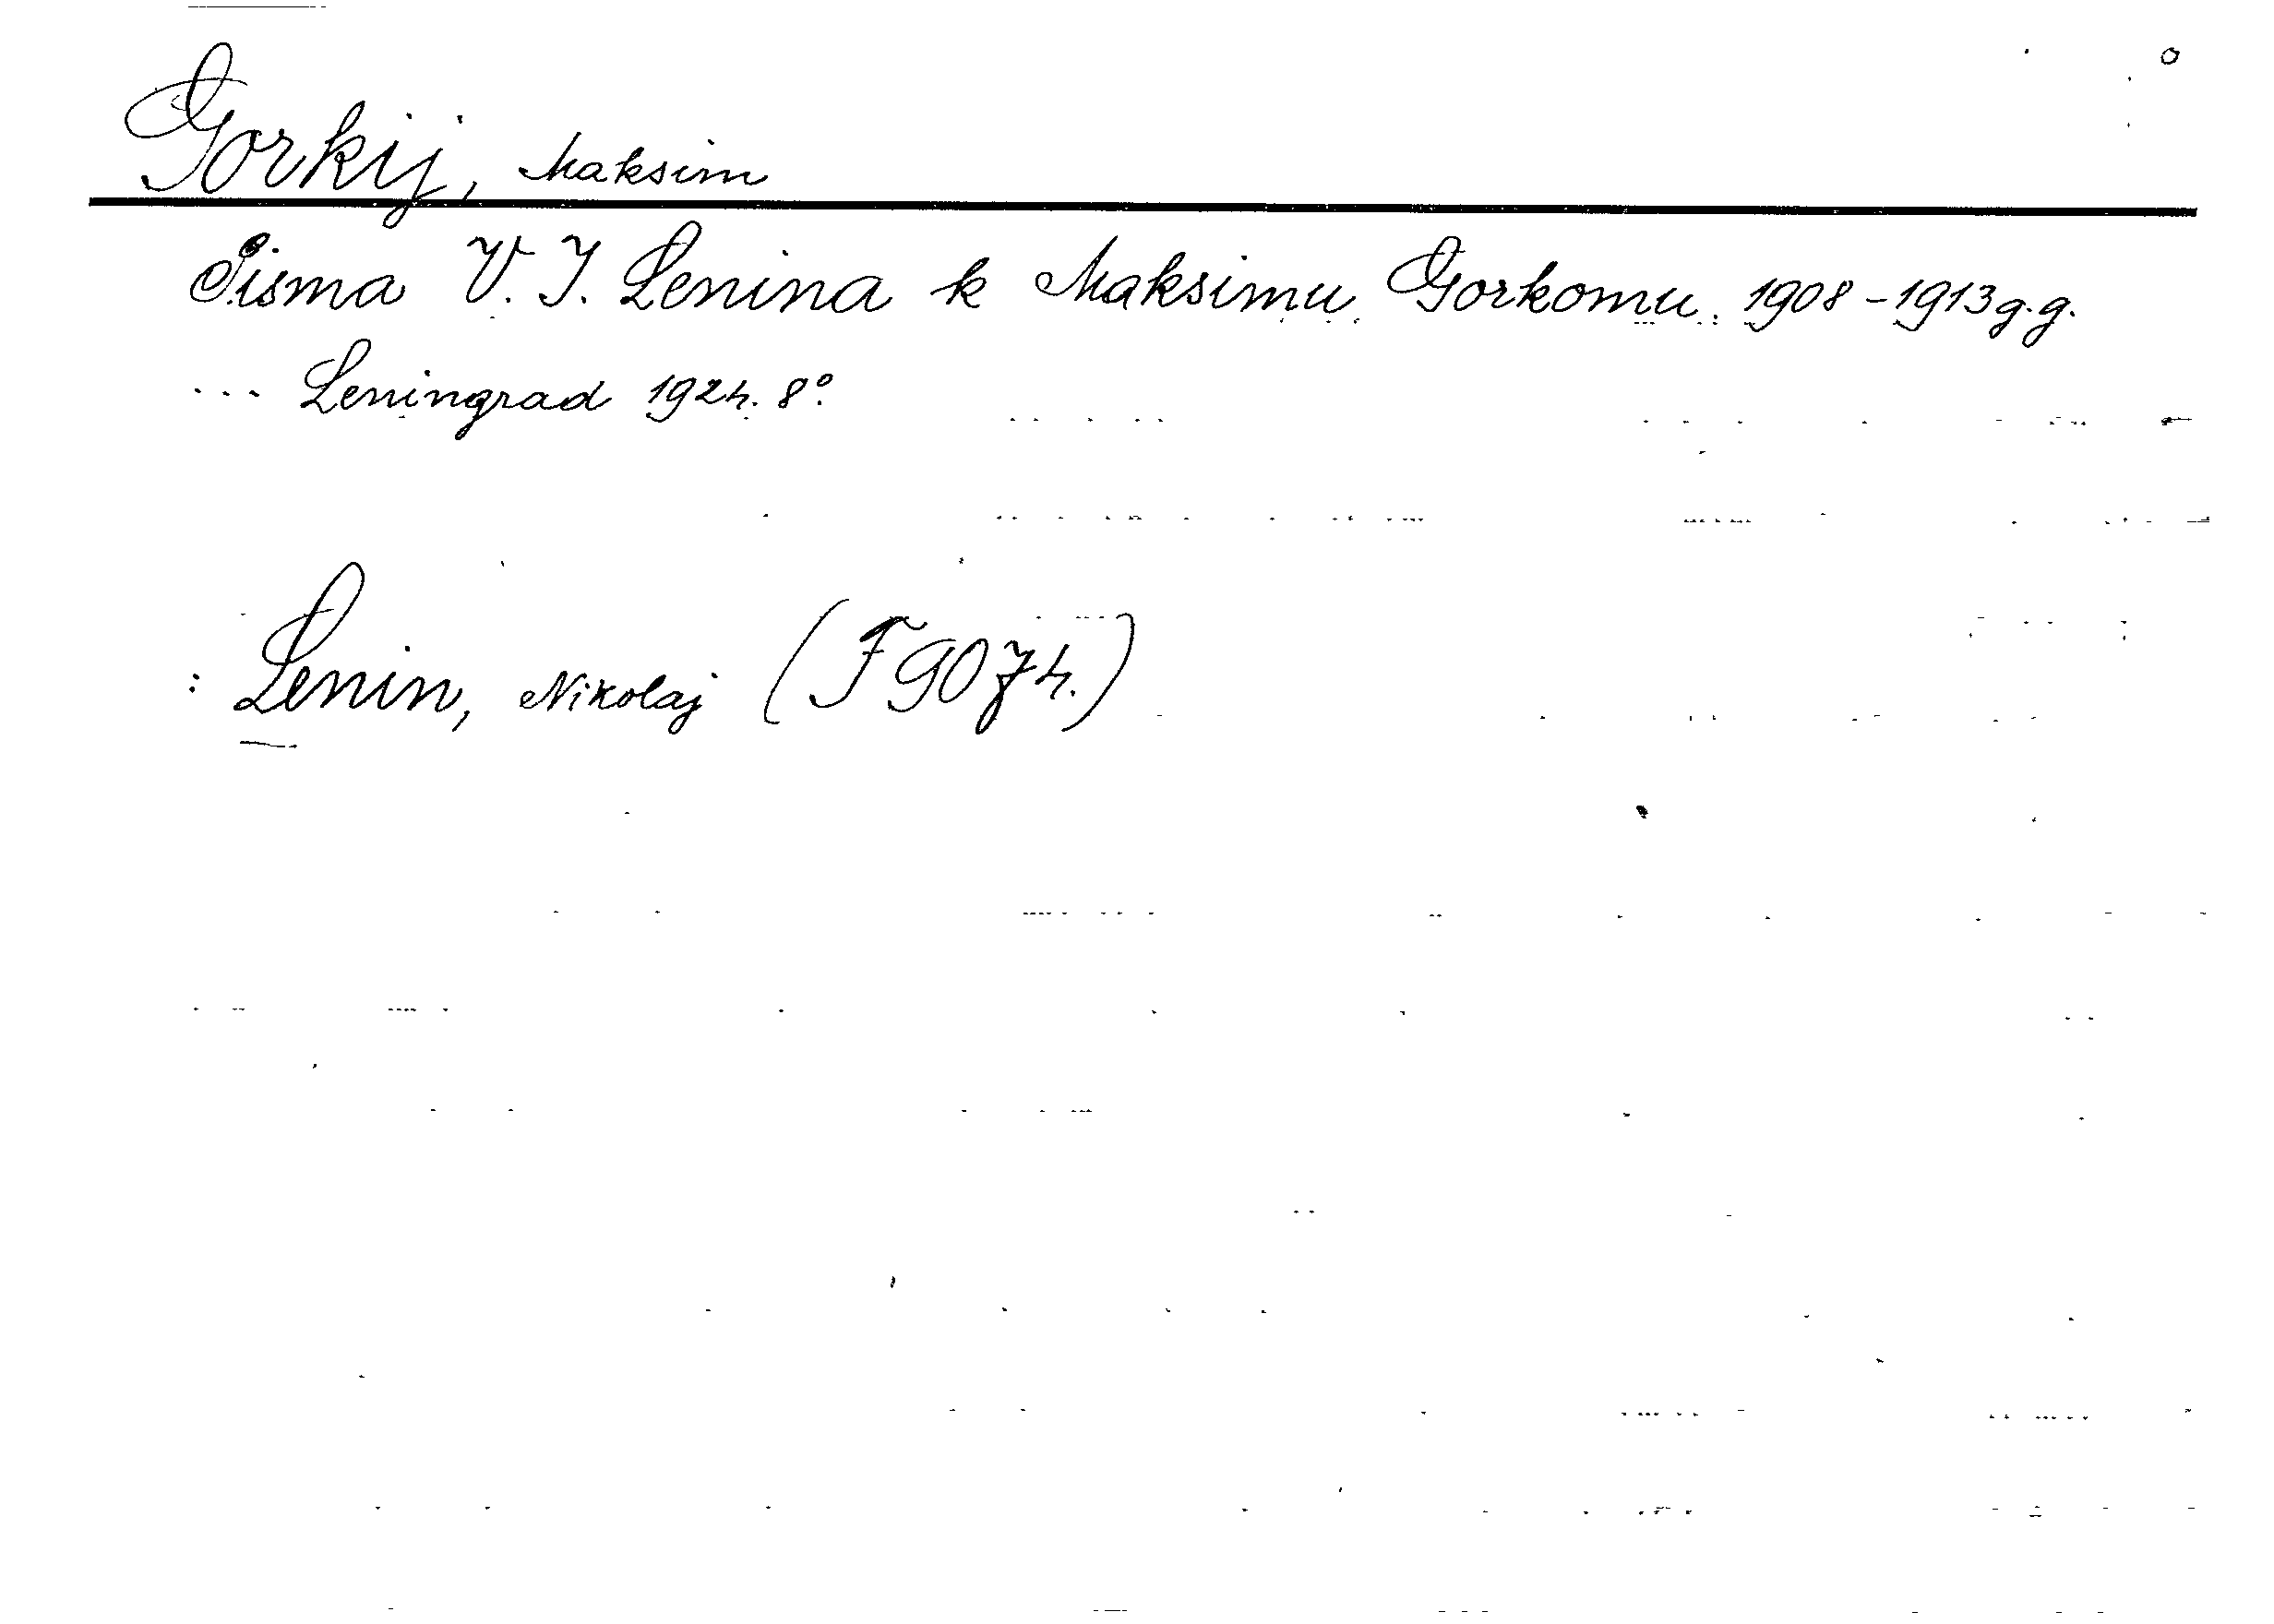 Gorkij, Maksim
Pisma V. I. Lenina k Maksimu Gorkomu. 1908-1913 g.g.
... Leningrad 1924. 8°.
: Lenin, Nikolaj (F 9074.)